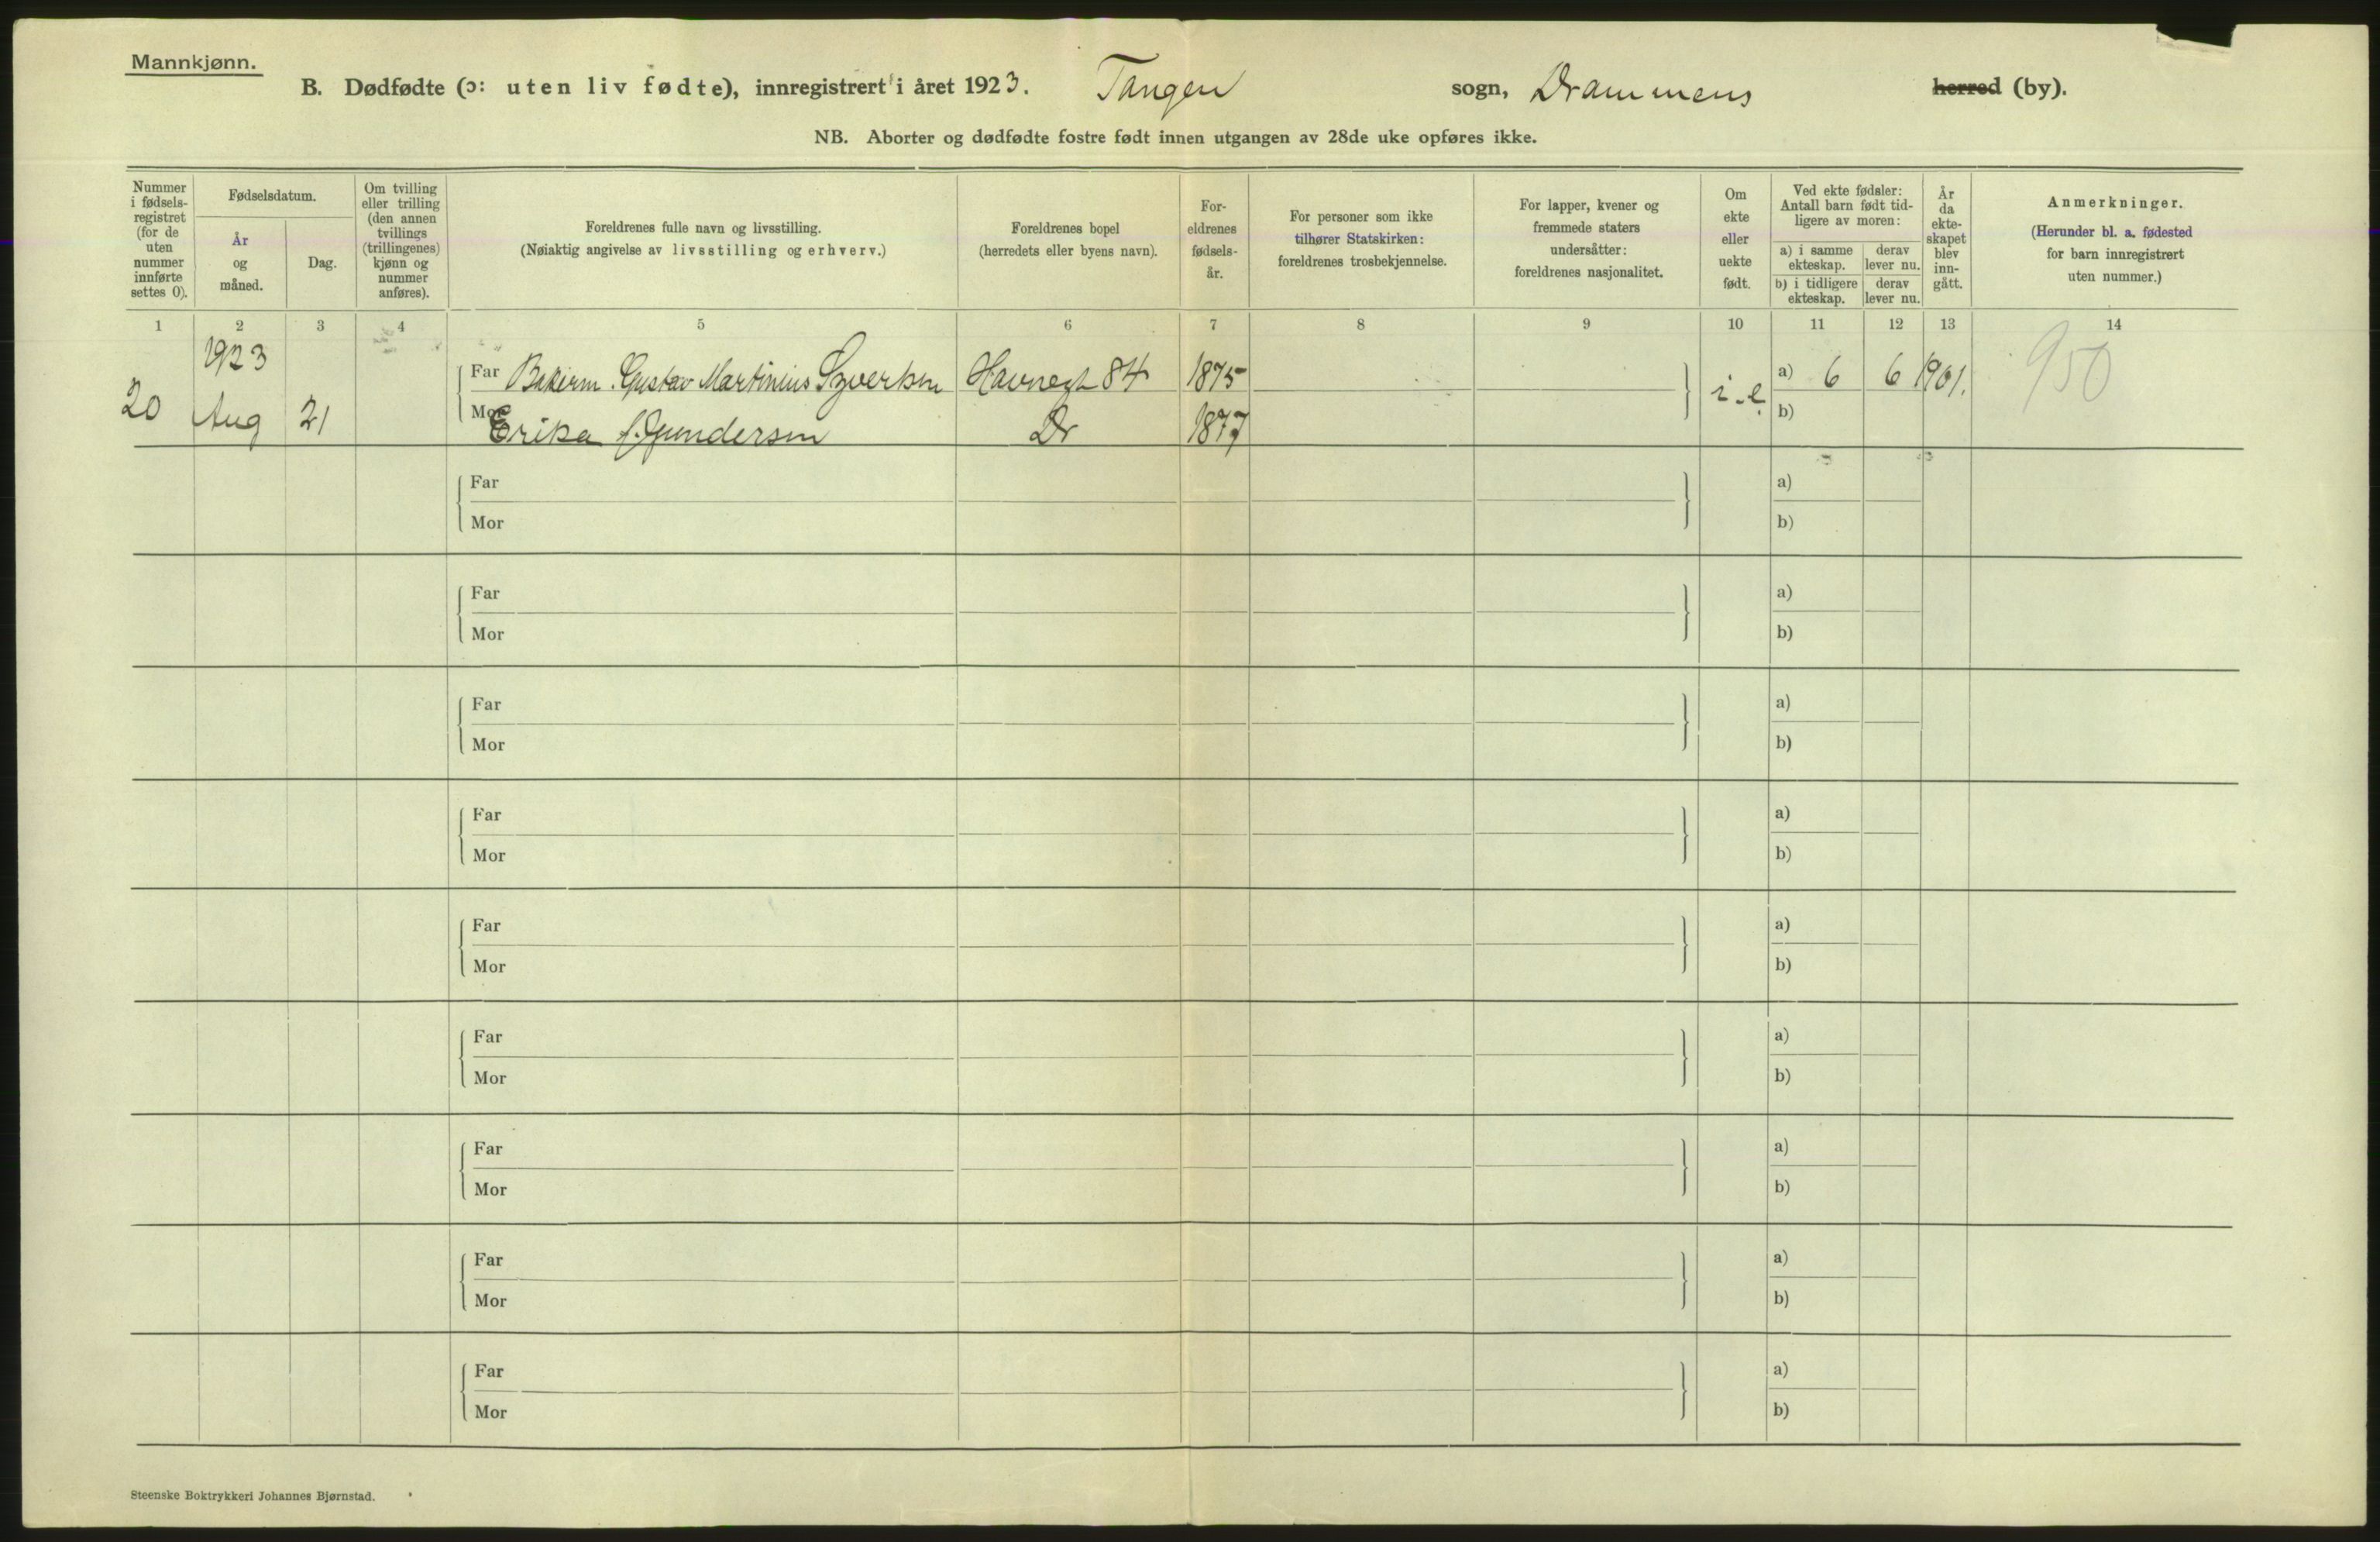 Mannkjønn.
B. Dødfødte (ɔ: uten liv fødte), innregistrert i året 1923. Tangen sogn, Drammens herred (by).
NB. Aborter og dødfødte fostre født innen utgangen av 28de uke opføres ikke.
Nummer i fødsels-registret (for de uten nummer innførte settes 0).
Fødselsdatum.
År og måned.
Dag.
Om tvilling eller trilling (den annen tvillings (trillingenes) kjønn og nummer anføres).
Foreldrenes fulle navn og livsstilling.
(Nøiaktig angivelse av livsstilling og erhverv.)
Foreldrenes bopel
(herredets eller byens navn).
For-eldrenes fødsels-år.
For personer som ikke
tilhører Statskirken:
foreldrenes trosbekjennelse.
For lapper, kvener og
fremmede staters
undersåtter:
foreldrenes nasjonalitet.
Om ekte eller uekte født.
Ved ekte fødsler:
Antall barn født tid-
ligere av moren:
a) i samme ekteskap.
derav lever nu.
b) i tidligere ekteskap.
derav lever nu.
År da ekte-skapet blev inn-gått.
Anmerkninger.
(Herunder bl. a. fødested
for barn innregistrert
uten nummer.)
1 2 3 4 5 6 7 8 9 10 11 12 13 14
1923
Far Bakerm. Gustav Martinius Syversen Havnegt 84 1875 a) 6 6 1901. 950
20 Aug 21 i.e. b)
Mor Erika f. Gundersen Dr 1877
Far a)
Mor b)
Far a)
Mor b)
Far a)
Mor b)
Far a)
Mor b)
Far a)
Mor b)
Far a)
Mor b)
Far a)
Mor b)
Far a)
Mor b)
Far a)
Mor b)
Steenske Boktrykkeri Johannes Bjørnstad.